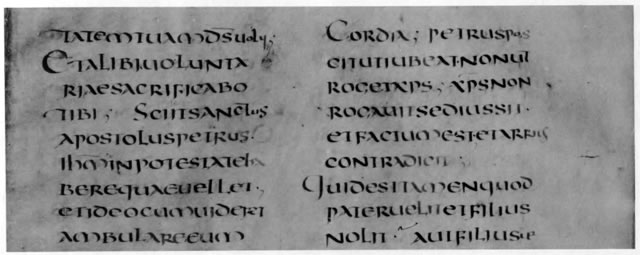 TATEMTUAMD̅S̅UOLUI;
ETALIBIUOLUNTA
RIAESACRIFICABO
TIBI; SCITSANCTUS
APOSTOLUSPETRUS
IHM̅INPOTESTATEHA
BEREQUAEUELLET;
ETIDEOCUMUIDERET
AMBULAREEUM
CORDIA; PETRUSPOS
CITUTIUBEATNONUT
ROGETXPS; XPSNON
ROGAUITSEDIUSSIT;
ETFACTUMEST·ETARRIUS
CONTRADICIT;
QUIDESTTAMENQUOD
PATERUELITETFILIUS
NOLIT· AUTFILIUS